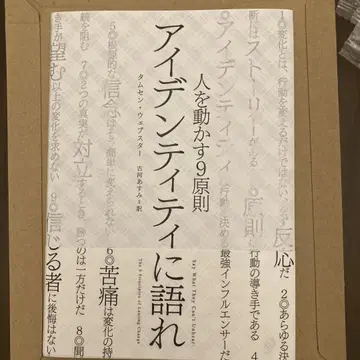 1◎変化とは、行動を変えるだけではない。反応だ 2◎あらゆる
断にはストーリーがある ◎原則は行動の導き手である
アイデンティティ 行動 決める最強インフルエンサーだ
人を動かす9原則
アイデンティティに語れ
Say What They Can't Unhear:
The 9 Principles of Lasting Change
タムセン・ウェブスター
古河あすみ=訳
5◎根源的な信念は 簡単に変えられない 6◎苦痛は変化の持
続を阻む 7◎2つの真実が対立するとき、勝つのは一方だけだ 8◎聞
き手が望む以上の変化を求めない 9◎信じる者に後悔はない